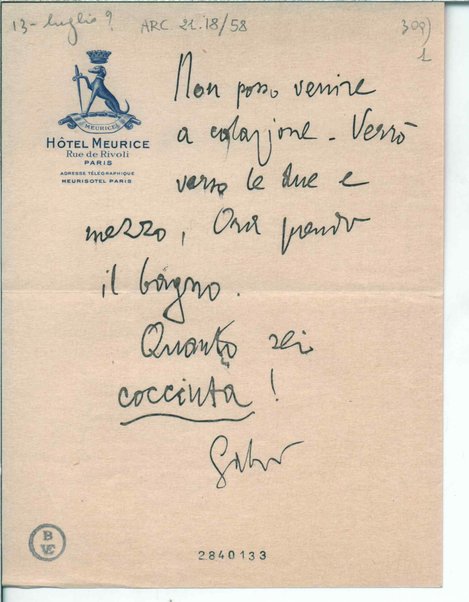 13 - luglio ?
ARC. 21.18/58
309)
1
MEURICE
HÔTEL MEURICE
Rue de Rivoli
PARIS
ADRESSE TÉLÉGRAPHIQUE
MEURISOTEL PARIS
Non posso venire
a colazione - Verrò
verso le due e
mezzo, Ora prendo
il bagno.
Quanto sei
cocciuta !
Gabri
B
VE
2840133